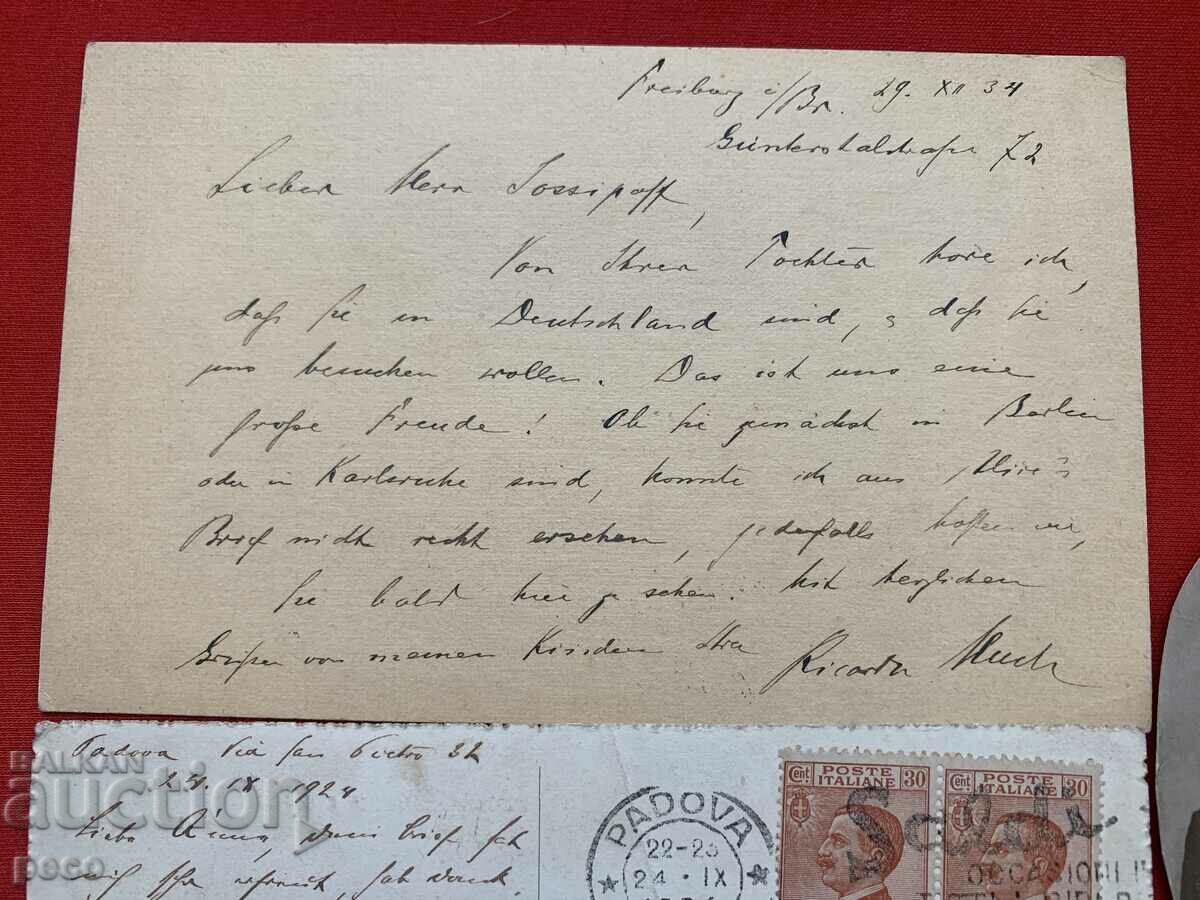 Freiburg i/Br. 29. XII 34
Günterstalstraße 72
Lieber Herr Jossipoff,
Von Ihrer Tochter höre ich,
daß Sie in Deutschland sind, & daß Sie
uns besuchen wollen. Das ist uns eine
große Freude! Ob Sie zunächst in Berlin
oder in Karlsruhe sind, konnte ich aus
Brief nicht recht ersehen, jedenfalls hoffen wir,
Sie bald hier zu sehen. Mit herzlichen
Grüßen von meinen Kindern Ihre Ricarda Huch
Padova Via San Pietro 32
24. IX 1924
Liebe Anna, Dein Brief hat
mich sehr erfreut, hab Dank.
PADOVA
22-23
24 · IX
Cent. POSTE 30
ITALIANE
POSTE 30
ITALIANE
OCCASIONI
BALKAN
auction
peco